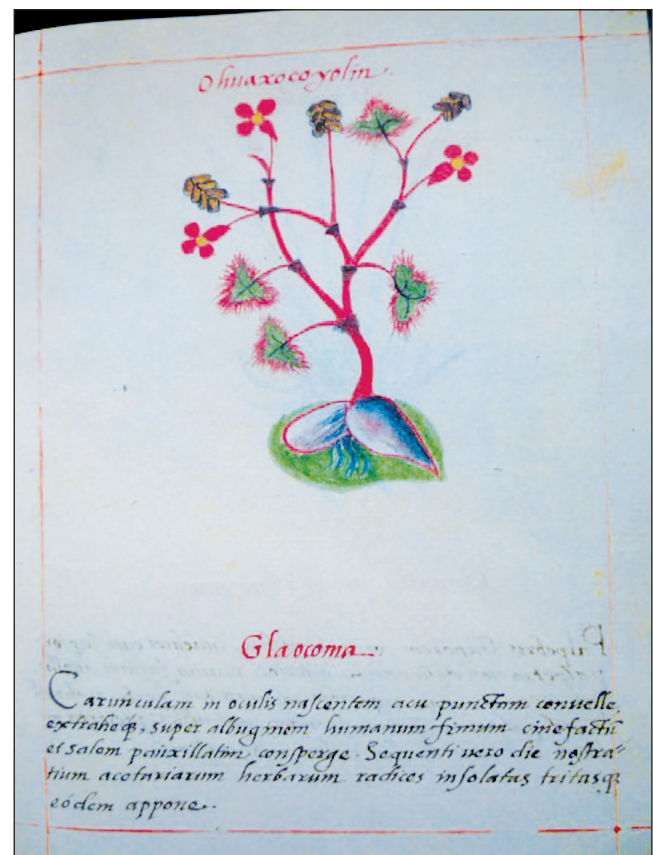 Ohuaxocoyolin.
Glaocoma.
Carunculam in oculis nascentem acu punctam conuelle,
extraheq;, super albuginem humanum fimum cinefactū
et salem pauxillatim consperge. Sequenti uero die nostra-
tium acetariarum herbarum radices insolatas tritasq;
eódem appone.